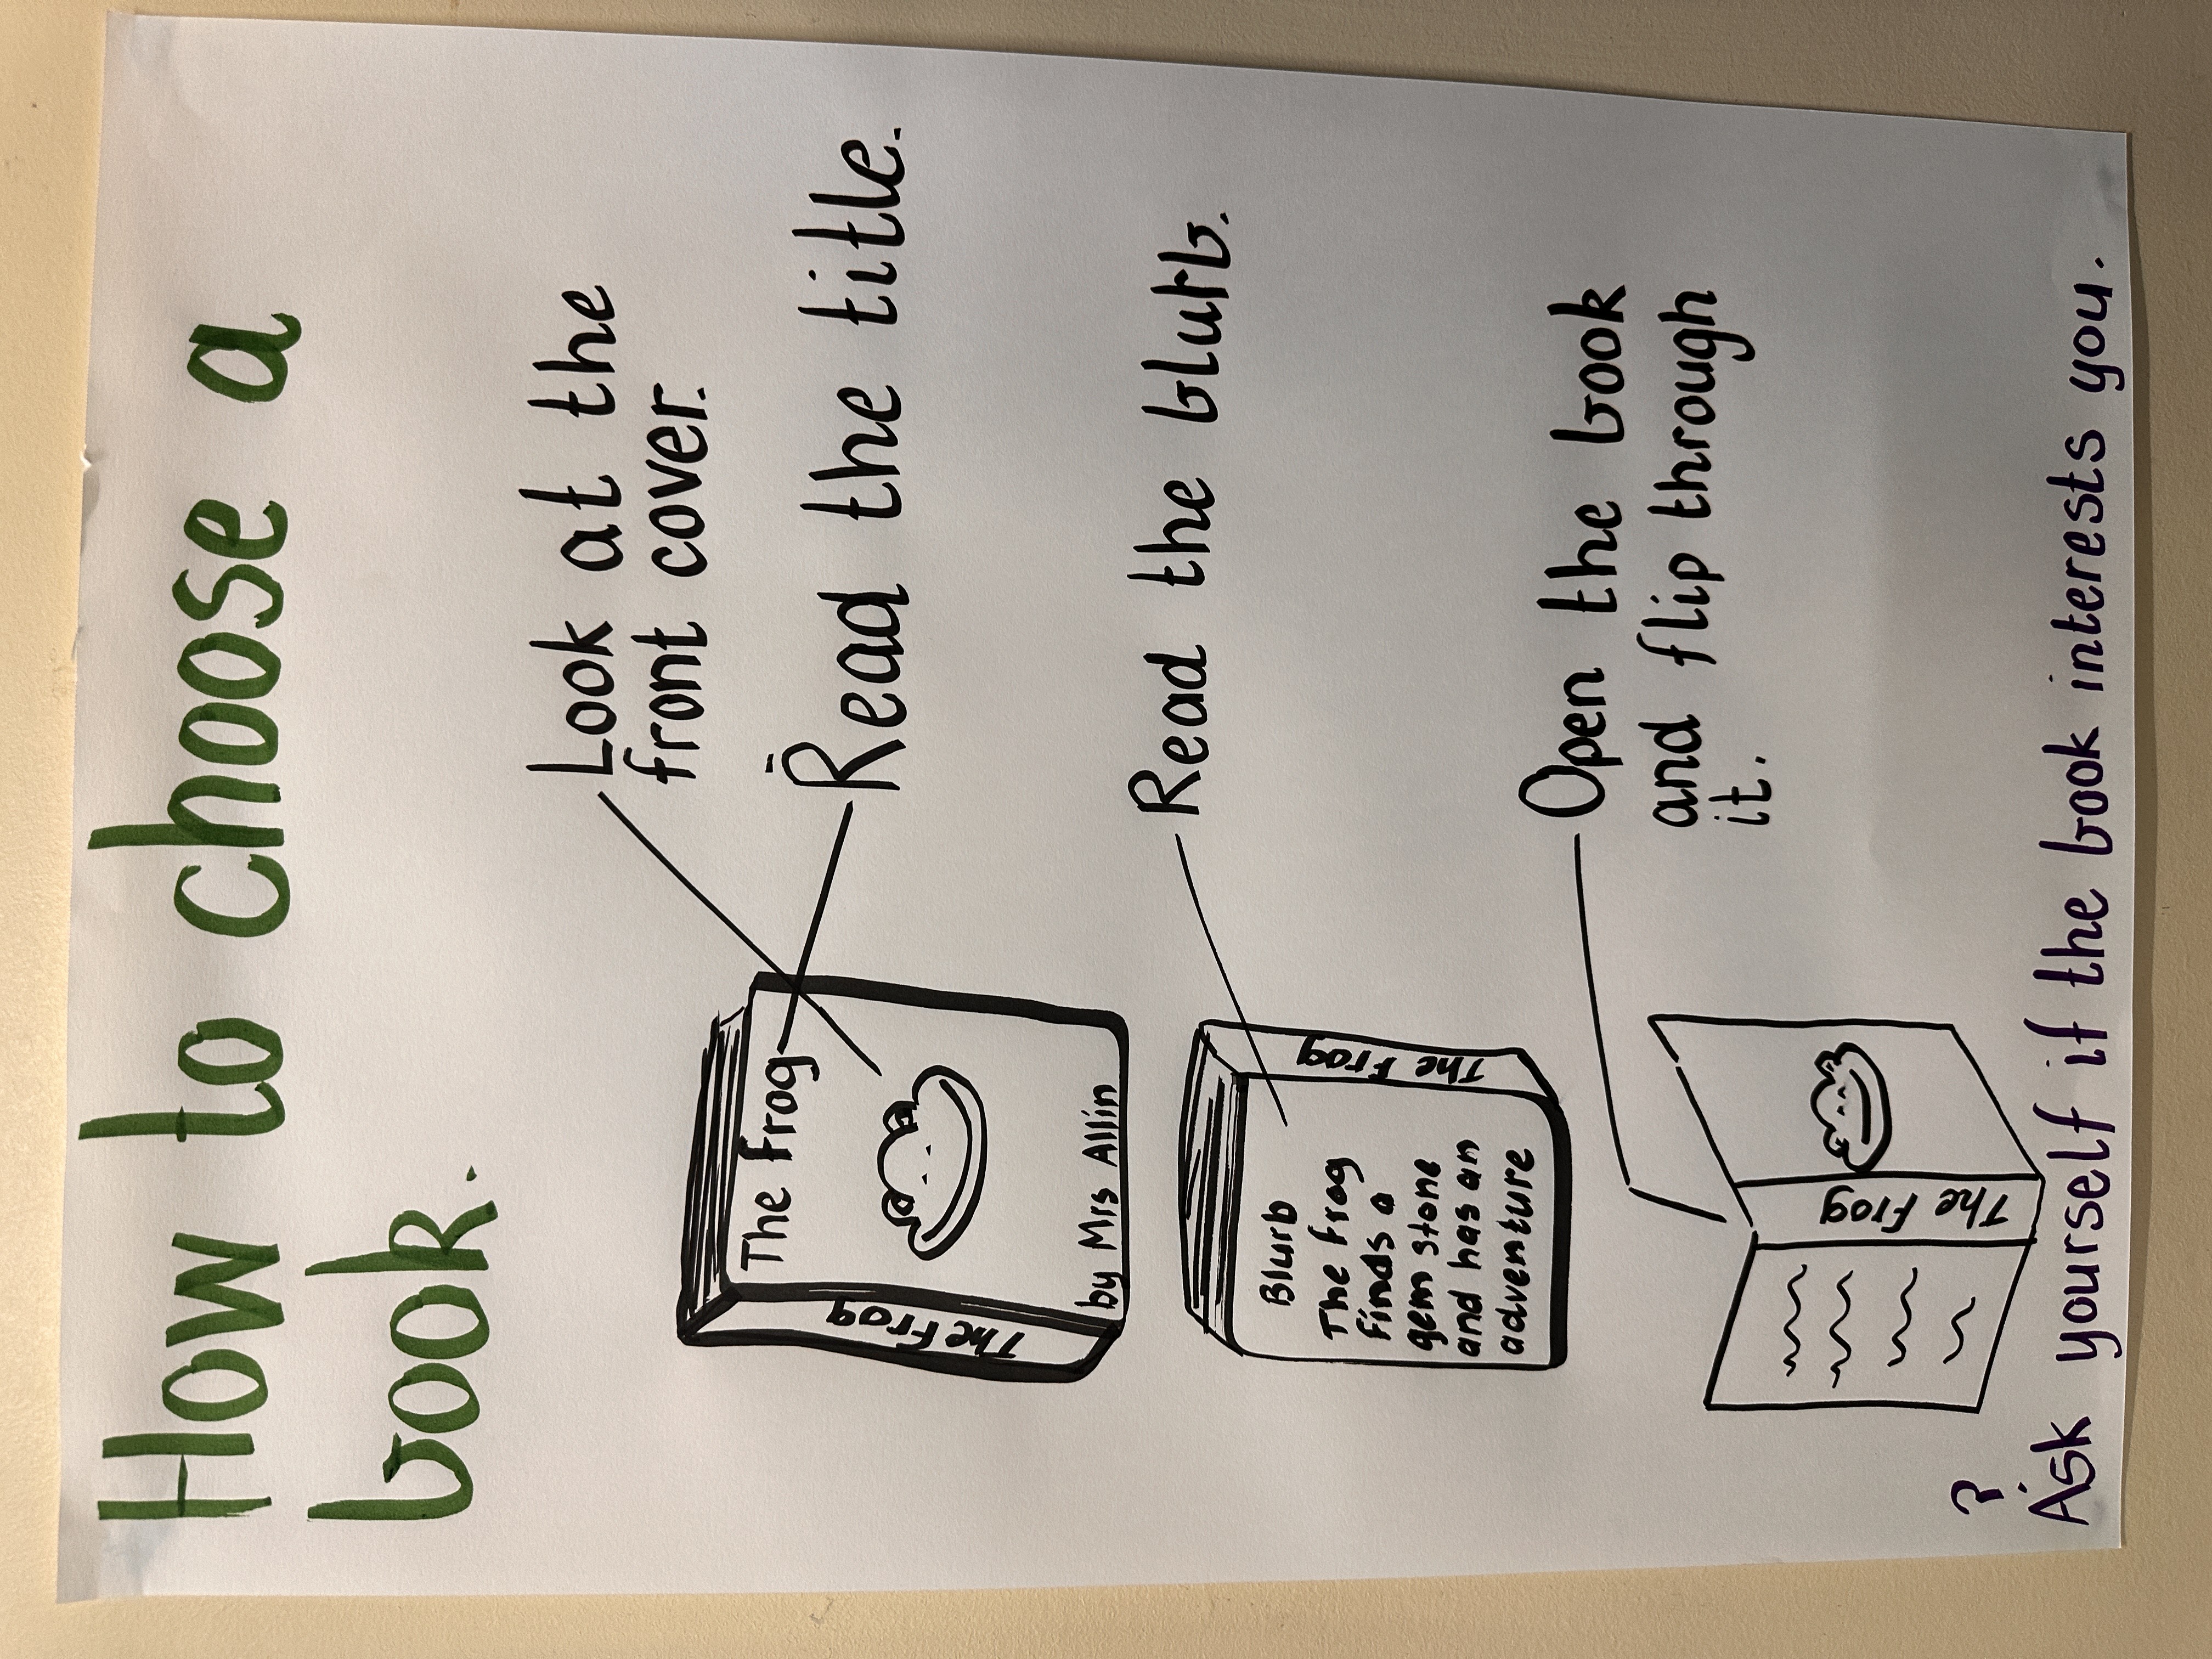 How to choose a
book.
Look at the
front cover.
Read the title.
The Frog
The Frog
by Mrs Allin
Read the blurb.
Blurb
The Frog
finds a
gem stone
and has an
adventure
The Frog
Open the book
and flip through
it.
The Frog
?
Ask yourself if the book interests you.